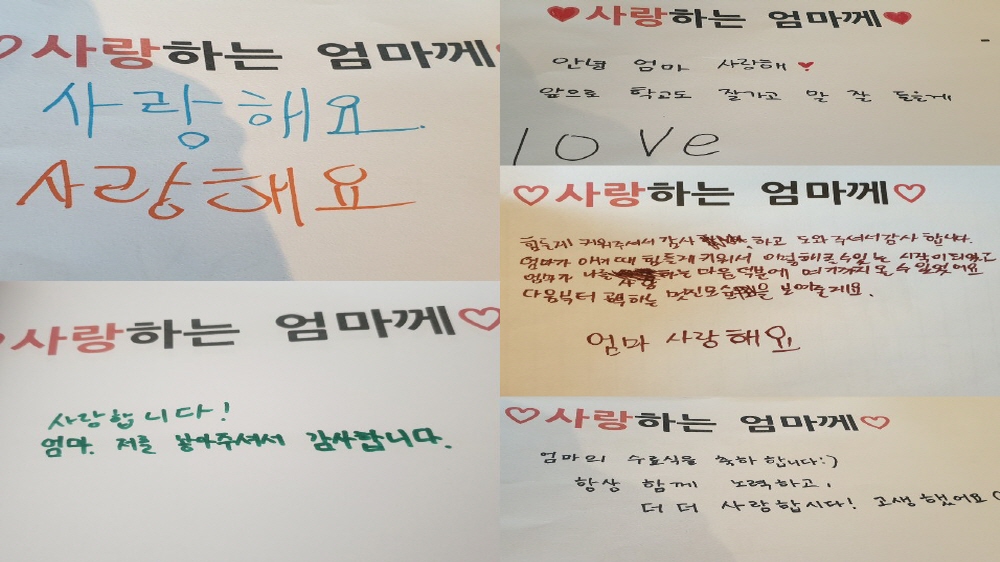 ♡사랑하는 엄마께♡
사랑해요
사랑해요
♡사랑하는 엄마께♡
사랑합니다!
엄마. 저를 낳아주셔서 감사합니다.
♥사랑하는 엄마께♥
안녕 엄마 사랑해♥
앞으로 학교도 잘가고 말 잘 들을게
love
♡사랑하는 엄마께♡
힘들게 키워주셔서 감사 하고 도와주셔서 감사 합니다.
엄마가 애기때 힘들게 키워서 이렇해 클수있는 시작이되었고
엄마가 나를 사랑하는 마음 덕분에 여기까지 올 수 있었어요
다음부터 노력하는 멋진모습을 보여줄게요.
엄마 사랑해요
♡사랑하는 엄마께♡
엄마의 수료식을 축하 합니다:)
항상 함께 노력하고,
더 더 사랑합시다! 고생했어요♡